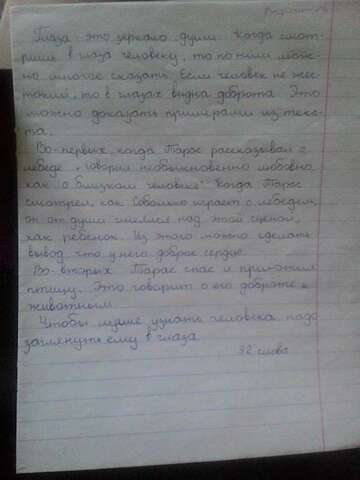 Вариант
Глаза - это зеркало души. Когда смот-
ришь в глаза человеку, то по ним мож-
но многое сказать, если человек не жес-
токий, то в глазах видна доброта. Это
можно доказать примерами из текс-
та.
Во-первых, когда Тарас рассказывал о
лебеде „говорил необыкновенно любовно,
как о близком человеке". Когда Тарас
смотрел, как Соболько играет с лебедем,
он от души смеялся над этой сценой,
как ребенок. Из этого можно сделать
вывод, что у него доброе сердце.
Во-вторых Тарас спас и приютил
птицу. Это говорит о его доброте к
животным.
Чтобы лучше узнать человека надо
заглянуть ему в глаза.
92 слова